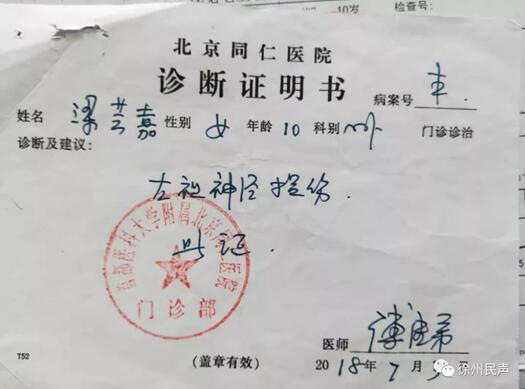 10岁 检查号:
北京同仁医院
诊断证明书
病案号
姓名 梁芸嘉 性别 女 年龄 10 科别 外 门诊诊治
诊断及建议:
左视神经损伤.
此证.
首都医科大学附属北京同仁医院
门诊部
医师
752 (盖章有效) 2018年7月
徐州民声